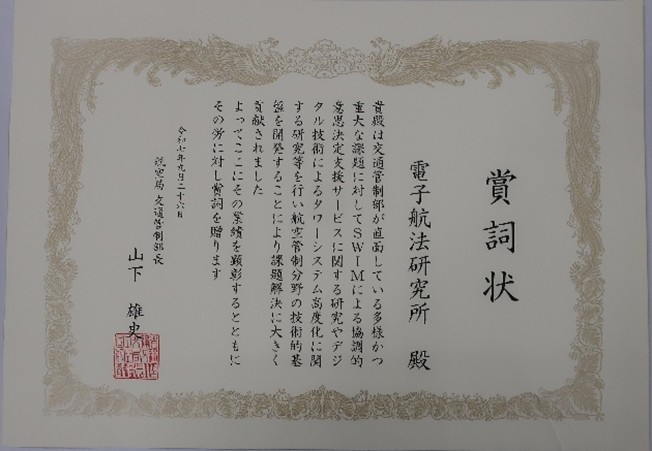 賞詞状
電子航法研究所 殿
貴殿は交通管制部が直面している多様かつ
重大な課題に対してSWIMによる協調的
意思決定支援サービスに関する研究やデジ
タル技術によるタワーシステム高度化に関
する研究等を行い航空管制分野の技術的基
盤を開発することにより課題解決に大きく
貢献されました
よってここにその業績を顕彰するとともに
その労に対し賞詞を贈ります
令和七年九月二十六日
航空局 交通管制部長
山下 雄史